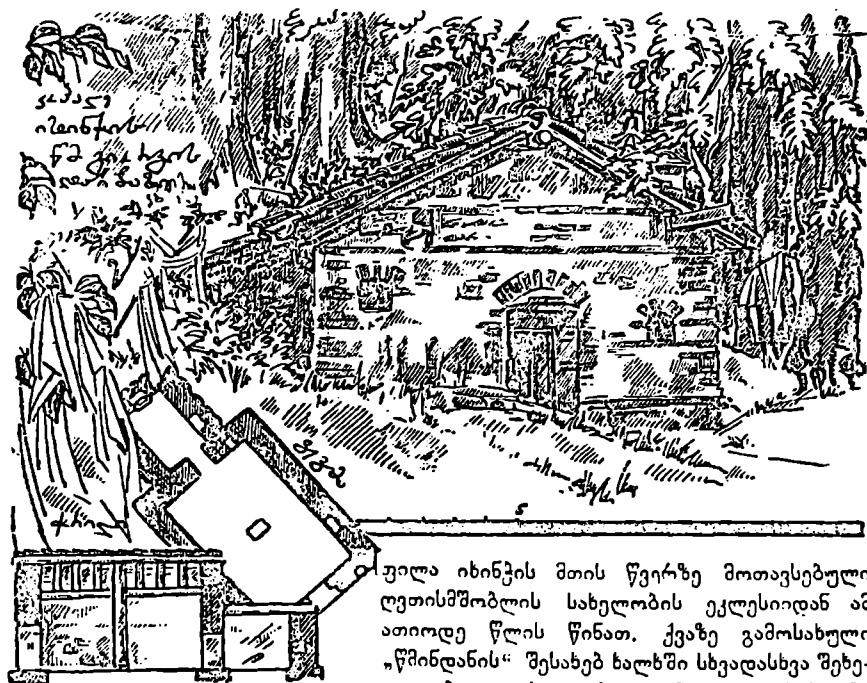 წმ. გიორგის
გეგმა
ჭრილი
5
ფილა იხინჭის მთის წვერზე მოთავსებული
ღვთისმშობლის სახელობის ეკლესიიდან ამ
ათიოდე წლის წინათ. ქვაზე გამოსახული
„წმინდანის“ შესახებ ხალხში სხვადასხვა შეხე-